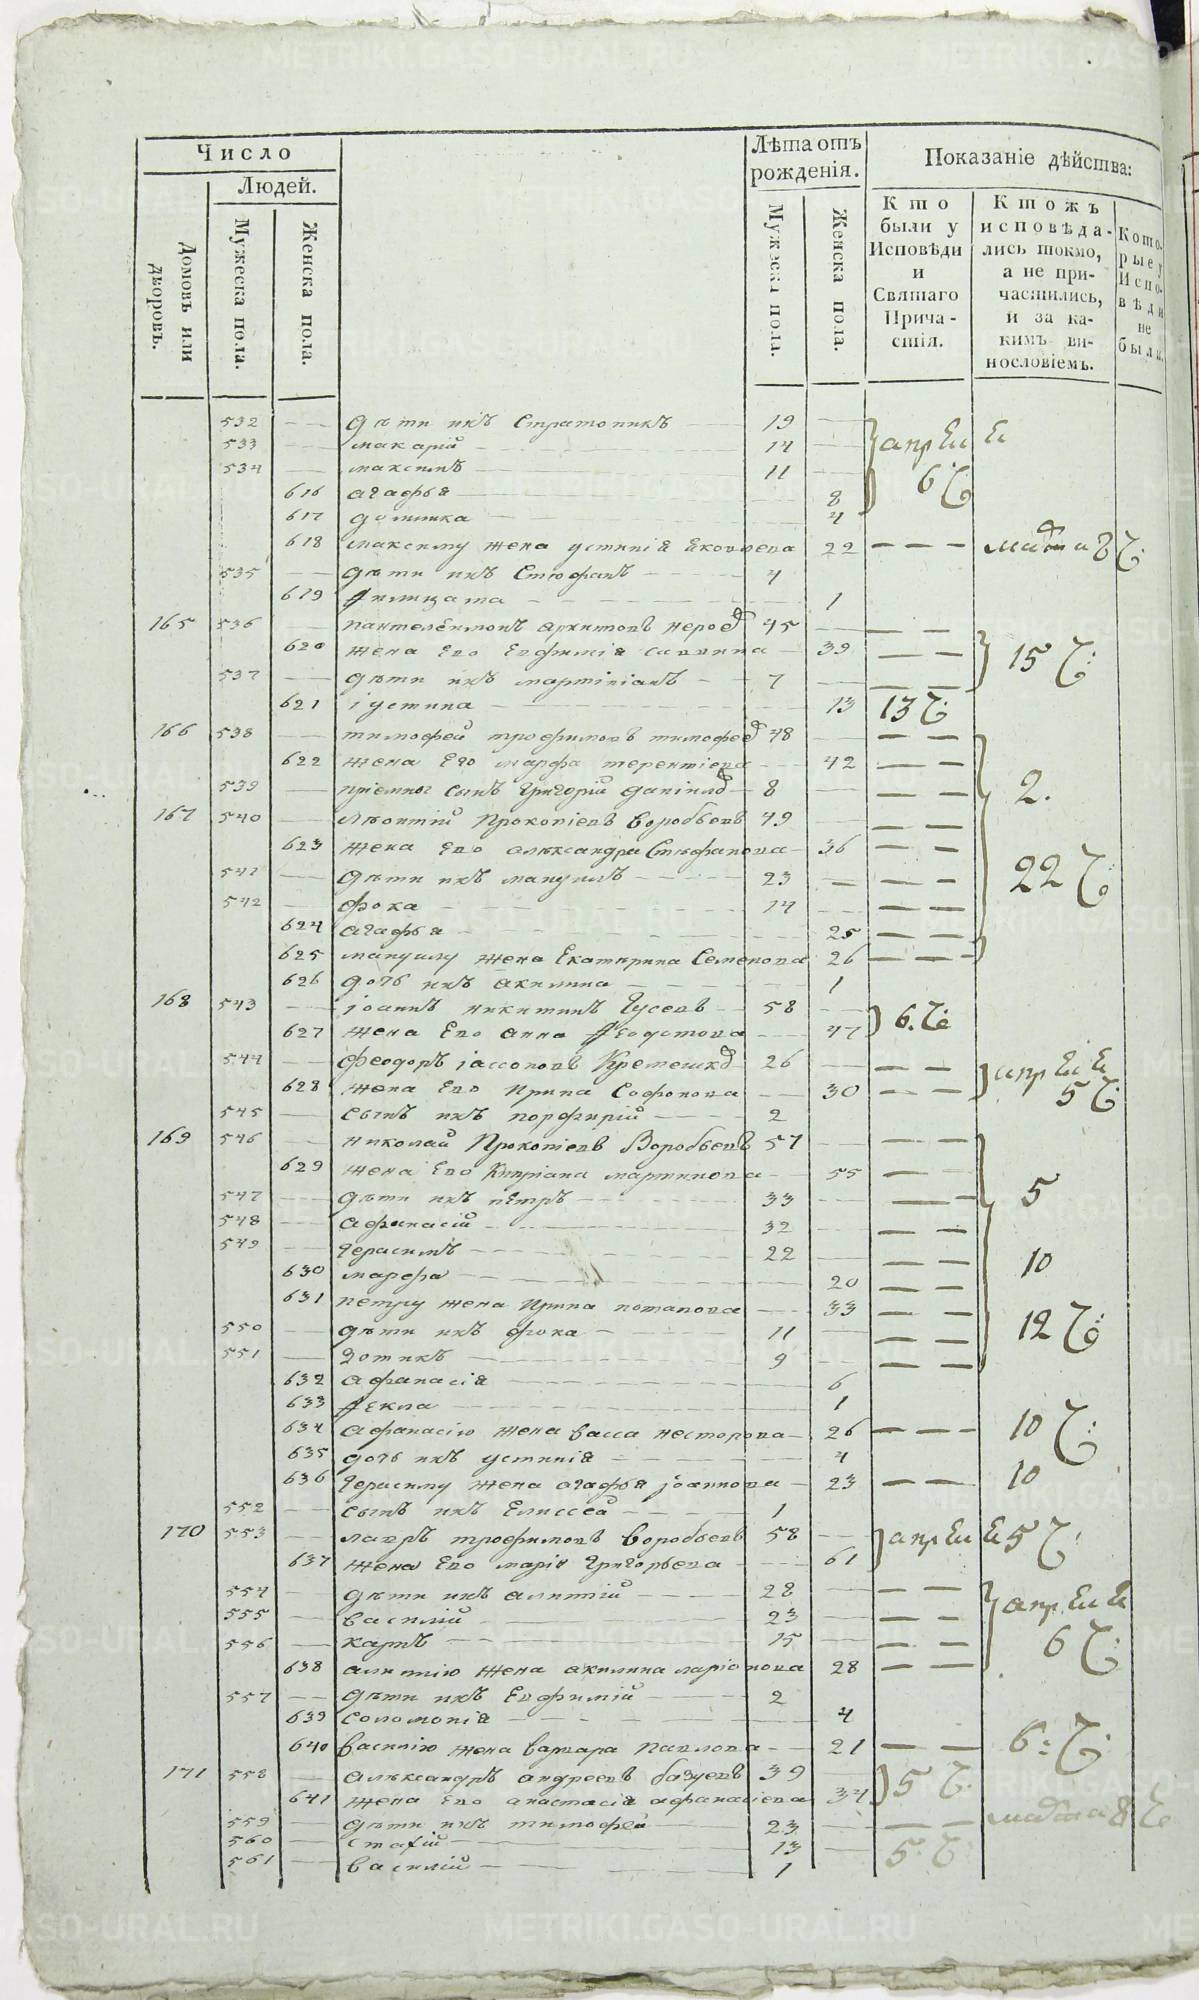 Число
Людей.
Домовъ или дворовъ.
Мужеска пола.
Женска пола.
Лѣта отъ рожденія.
Мужеска пола.
Женска пола.
Показаніе дѣйства:
Кто были у Исповѣди и Святаго Причастія.
Ктожъ исповѣдались токмо, а не причастились, и за какимъ винословіемъ.
Которые у Исповѣди не были.
532 дѣти ихъ Стратоникъ 19
533 макарий 14 апрЕлЕ
534 максимъ 11 6 Ч:
616 агафья 8
617 домника 4
618 максиму жена устиніа Яковлева 22 марта 8 Ч:
535 дѣти ихъ Стефанъ 4
619 Филицата 1
165 536 пантелЕимонъ архиповъ 45
620 жена Его Евфиміа саввина 39 15 Ч:
537 дѣти ихъ мартініанъ 7
621 іустина 13 13 Ч:
166 538 тимофей трофимовъ тимофеев 48
622 жена Его марфа терентіева 42
539 пріемног сынъ григорий данілов 8 2.
167 540 лѣонтий Прокопіевъ воробьевъ 49
623 жена Его алѣксандра Стѣфанова 36
541 дѣти ихъ мануилъ 23 22 Ч:
542 фока 14
624 агафья 25
625 мануилу жена Екатирина Семенова 26
626 дочь ихъ акилина 1
168 543 іоаннъ никитинъ гусевъ 58
627 жена Его анна Феодотова 47 6. Ч:
544 феодоръ іассоновъ 26 апрЕлЕ
628 жена Его Ирина Софонова 30 5 Ч:
545 сынъ ихъ порфирий 2
169 546 николай Прокопіевъ Воробьевъ 57
629 жена Его Кипріана мартинова 55
547 дѣти ихъ пЕтръ 33 5
548 афанасий 32
549 герасимъ 22 10
630 марфа 20
631 петру жена Ирина потапова 33
550 дѣти ихъ фока 11 12 Ч:
551 Зотикъ 9
632 афанасіа 6
633 Фекла 1
634 афанасію жена васса несторова 26 10 Ч:
635 дочь ихъ устиніа 4
636 герасиму жена агафья іоаннова 23 10
552 сынъ ихъ Елиссей 1
170 553 лавръ трофимовъ воробьевъ 58 апрЕлЕ 5 Ч:
637 жена Его маріа григорьева 61
554 дѣти ихъ алипий 28
555 василий 23 апрЕлЕ
556 карпъ 15 6 Ч:
638 алипію жена акилина ларіонова 28
557 дѣти ихъ Евфимий 2
639 соломоніа 4
640 василію жена варвара Павлова 21 6: Ч:
171 558 алѣксандръ андреевъ базуевъ 39
641 жена Его анастасіа афанасіева 34 5 Ч:
559 дѣти ихъ тимофей 23 марта 8 Ч:
560 13
561 василий 1 5. Ч: